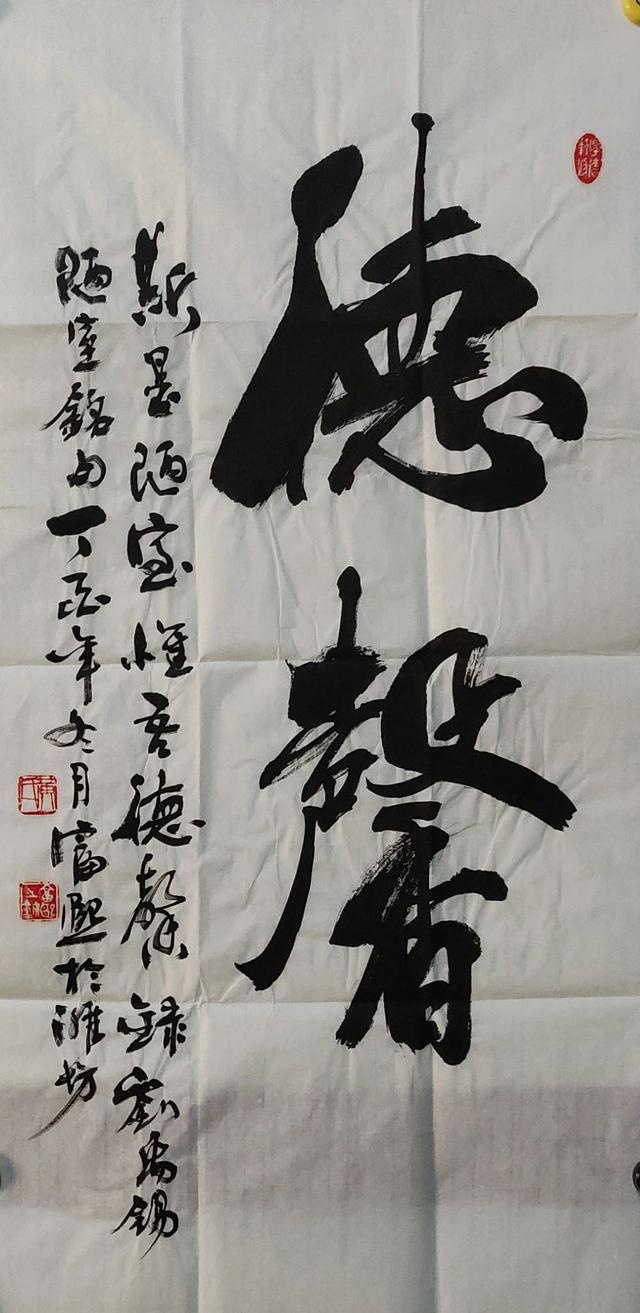 德馨
斯是陋室惟吾德馨錄劉禹錫
陋室銘句丁酉年冬月富熙於濰坊